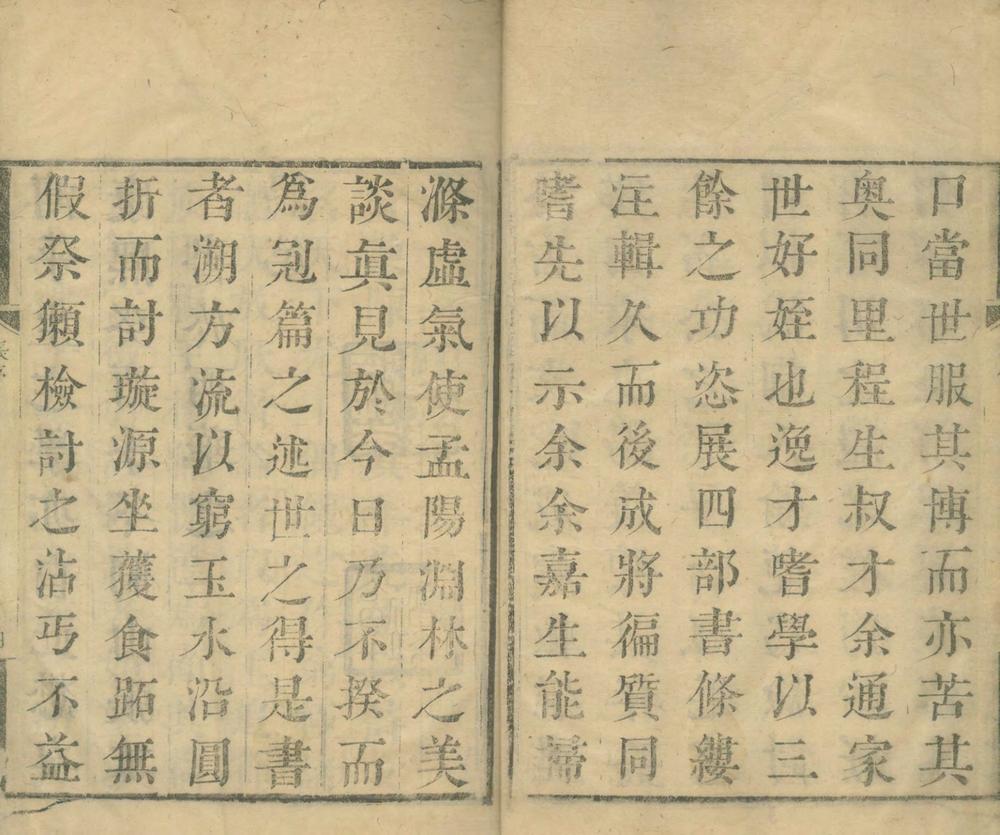 口當世服其博而亦苦其
奥同里程生叔才余通家
世好姪也逸才嗜學以三
餘之功恣展四部書條縷
注輯久而後成將徧質同
嗜先以示余余嘉生能掃
滌虛氣使孟陽淵林之美
談眞見於今日乃不揆而
爲冠篇之述世之得是書
者溯方流以窮玉水沿圓
折而討璇源坐獲食跖無
假祭獺檢討之沾丐不益